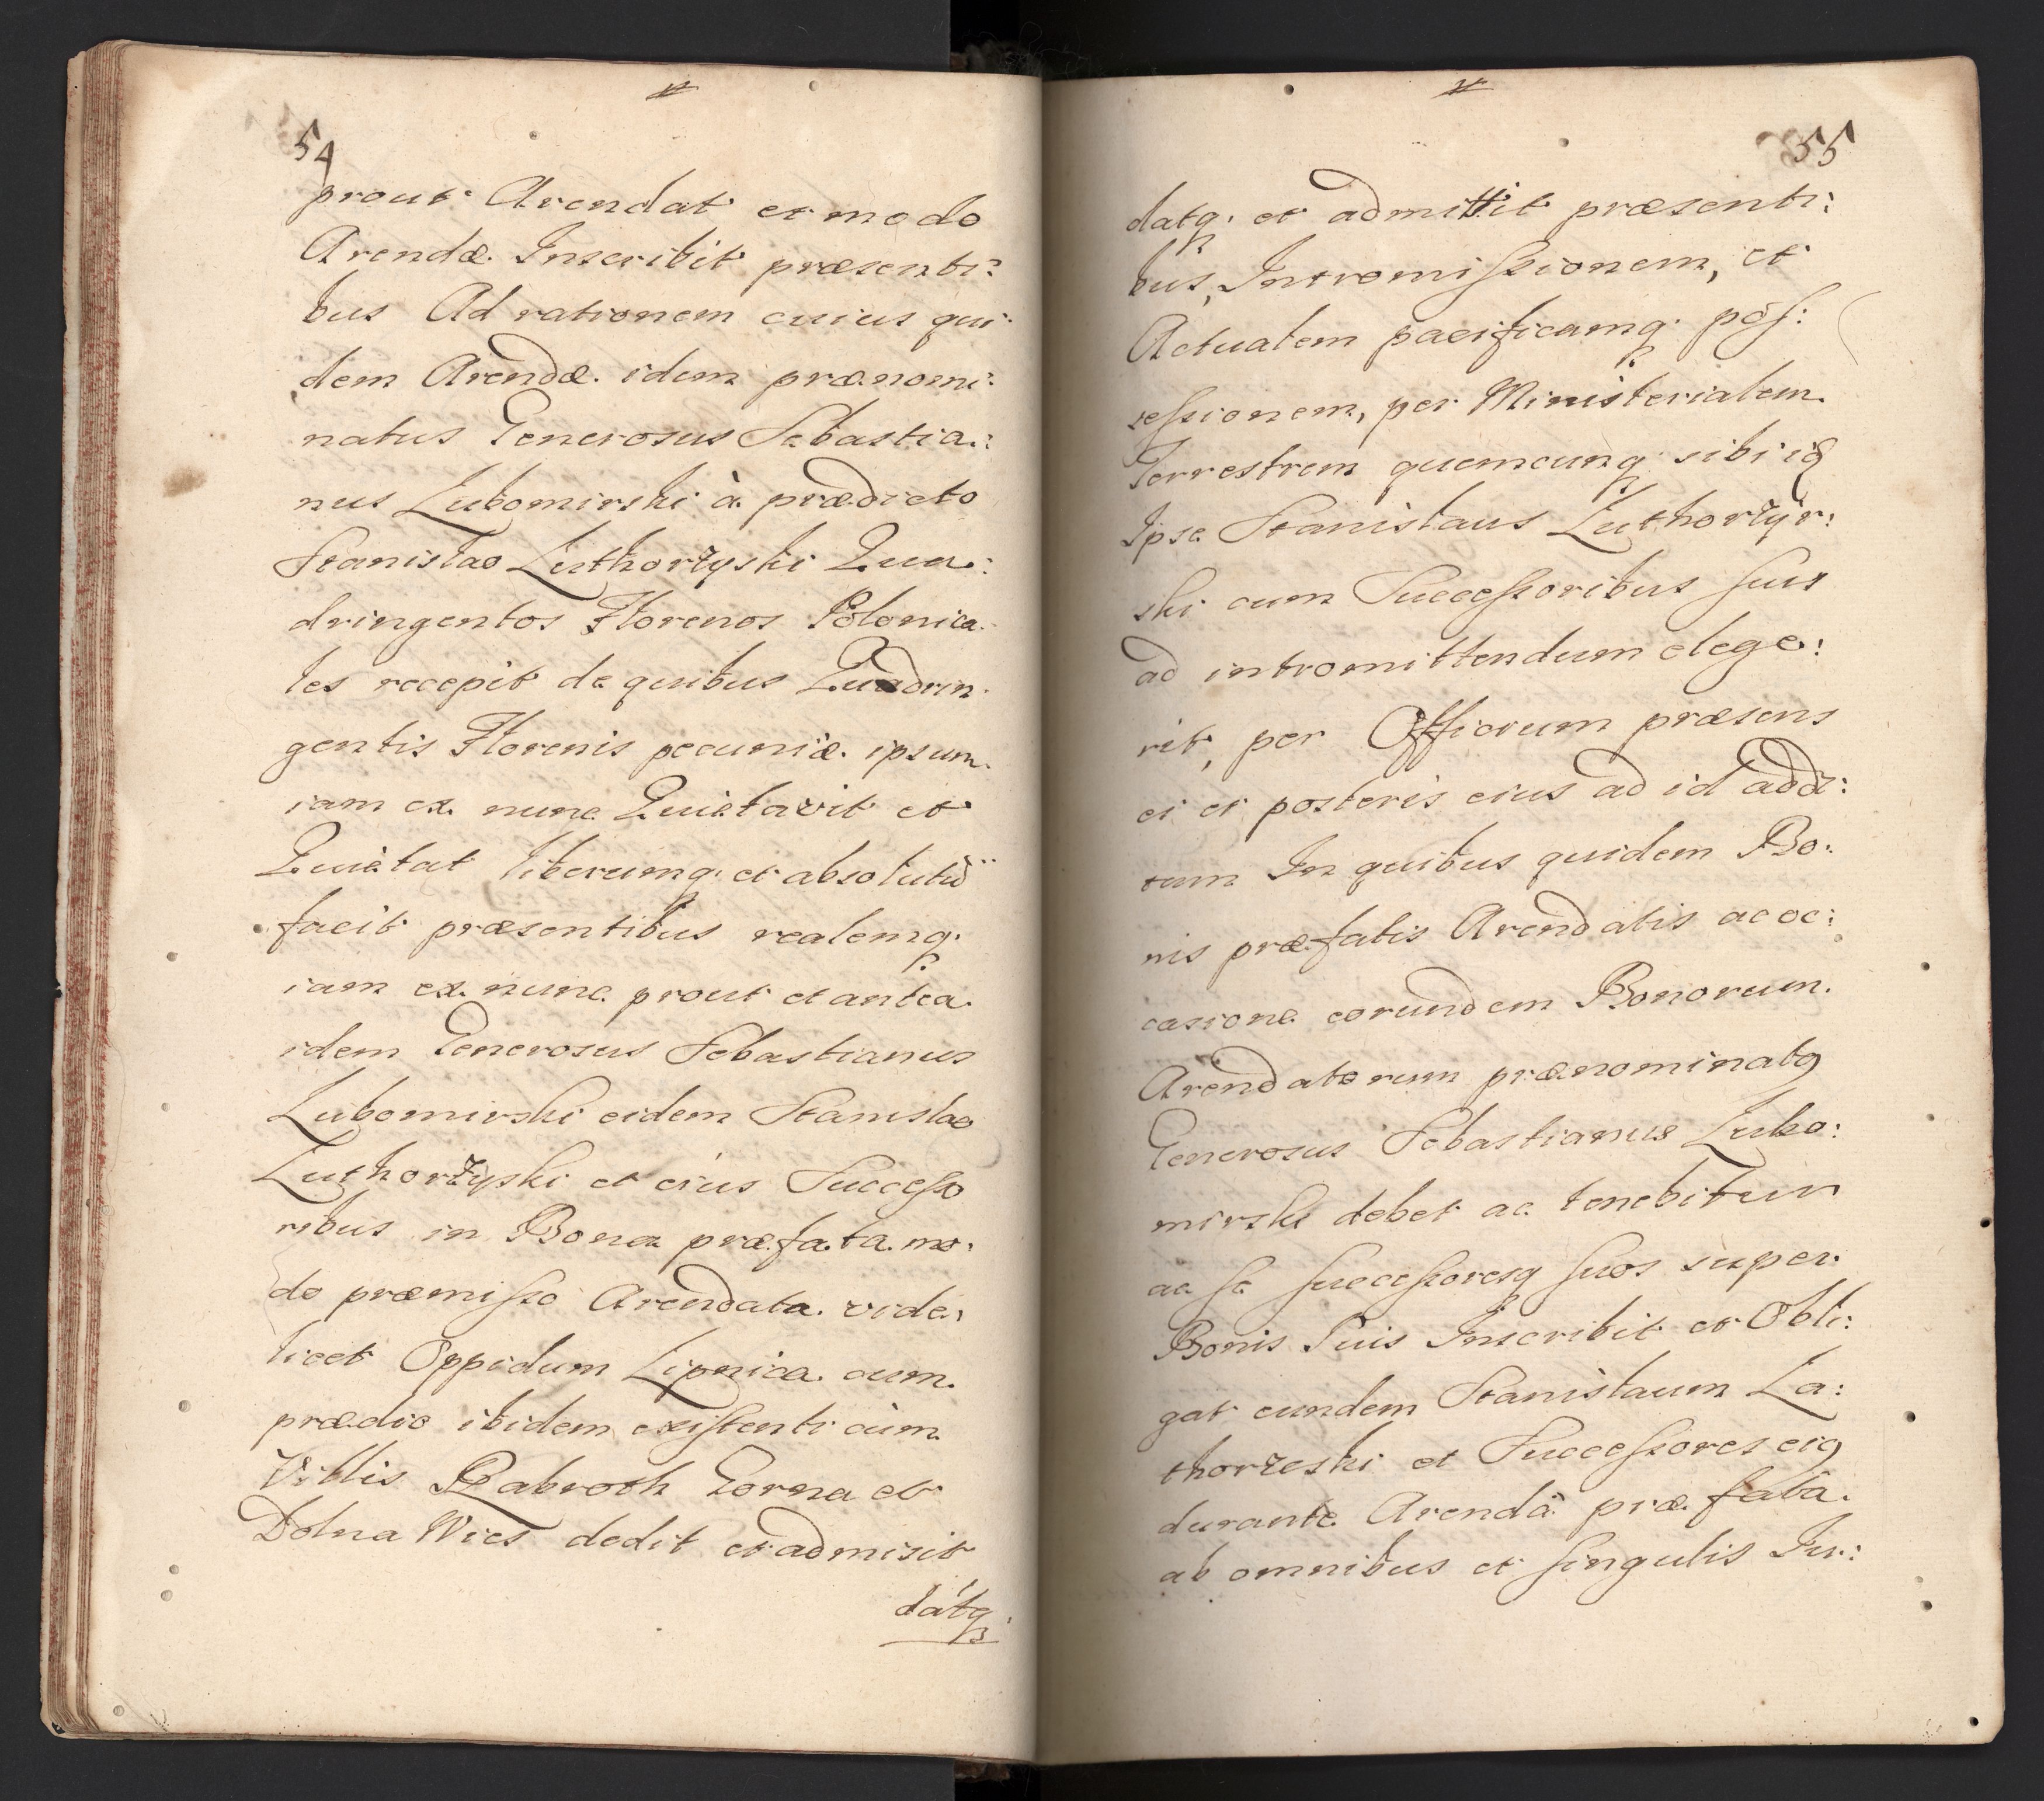 54
prout Arendat et modo
Arendæ Inscribit præsenti:
bus Ad rationem cuius qui:
dem Arendæ idem prænomi:
natus Generosus Sebastia:
nus Lubomirski à prædicto
Stanislao Luthorzyski Qua:
dringentos Florenos Polonica:
les recepit de quibus Quadrin:
gentis Florenis pecuniæ ipsum
iam ex nunc Quietavit et
Quietat liberumq; et absolutũ
facit præsentibus realemq;
iam ex nunc prout et antea
idem Generosus Sebastianus
Lubomirski eidem Stanislao
Luthorzyski et eius Successo
ribus in Bona præfata mo:
do præmisso Arendata vide:
licet Oppidum Lipnica cum
prædio ibidem existenti cùm
Villis Rabroth Gorna et
Dolna Wies dedit et admisit
datq;
55
datq; et admittit præsenti:
bus, Intromissionem, et
Actualem pacificamq; pos:
sessionem, per Ministerialem
Terrestrem quemcunq; sibi id
Ipse Stanislaus Luthorzyr:
ski cum Successoribus suis
ad intromittendum elege:
rit, per Officium præsens
ei et posteris eius ad id addi:
tum In quibus quidem Bo:
nis præfatis Arendatis ac oc:
casione eorundem Bonorum
Arendatorum prænominatq
Generosus Sebastianus Lubo:
mirski debet ac tenebitur
ac se successoresq suos super
Bonis Suis Inscribit et Obli:
gat eundem Stanislaum La:
thorzeski et Successores eiq
durante Arendâ præfata
ab omnibus et singulis Iur: